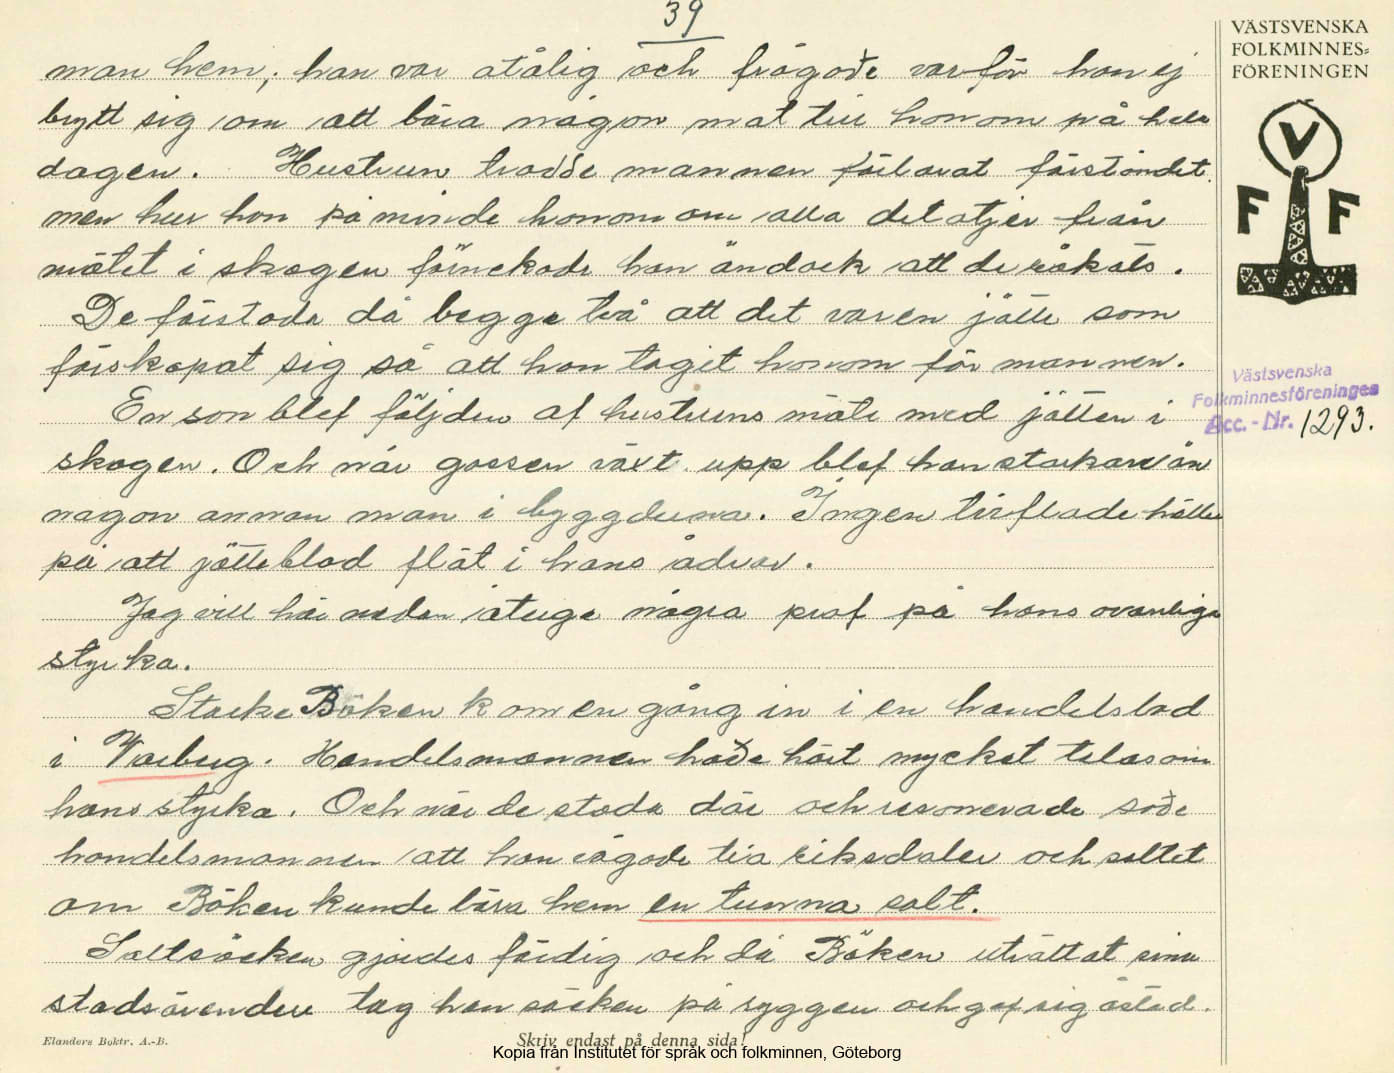 39
man hem, han var otålig och frågade varför hon ej
brytt sig om att bära någon mat till honom på hela
dagen. Hustrun trodde mannen förlorat förståndet
men hur hon påminde honom om alla detaljer från
mötet i skogen förnekade han ändock att de råkats.
De förstodo då begge två att det var en jätte som
förskapat sig så att hon tagit honom för mannen.
En son blef följden af hustruns möte med jätten i
skogen. Och när gossen växt upp blef han starkare än
nagon annan man i byggderna. Ingen tviflade heller
på att jätteblod flöt i hans ådror.
Jag vill här nedan återge några prof på hans ovanliga
styrka.
Starke Böken kom en gång in i en handelsbod
i Varberg. Handelsmannen hade hört mycket talas om
hans styrka. Och när de stodo där och resonerade sade
handelsmannen att han vågade tio riksdaler och saltet
om Böken kunde bära hem en tunna salt.
Saltsäcken gjordes färdig och då Böken uträttat sina
stadsärenden tog han säcken på ryggen och gaf sig åstad.
VÄSTSVENSKA
FOLKMINNES=
FÖRENINGEN
V
F F
Västsvenska
Folkminnesföreningen
Acc.-Nr. 1293.
Elanders Boktr. A.-B.
Skriv endast på denna sida!
Kopia från Institutet för språk och folkminnen, Göteborg